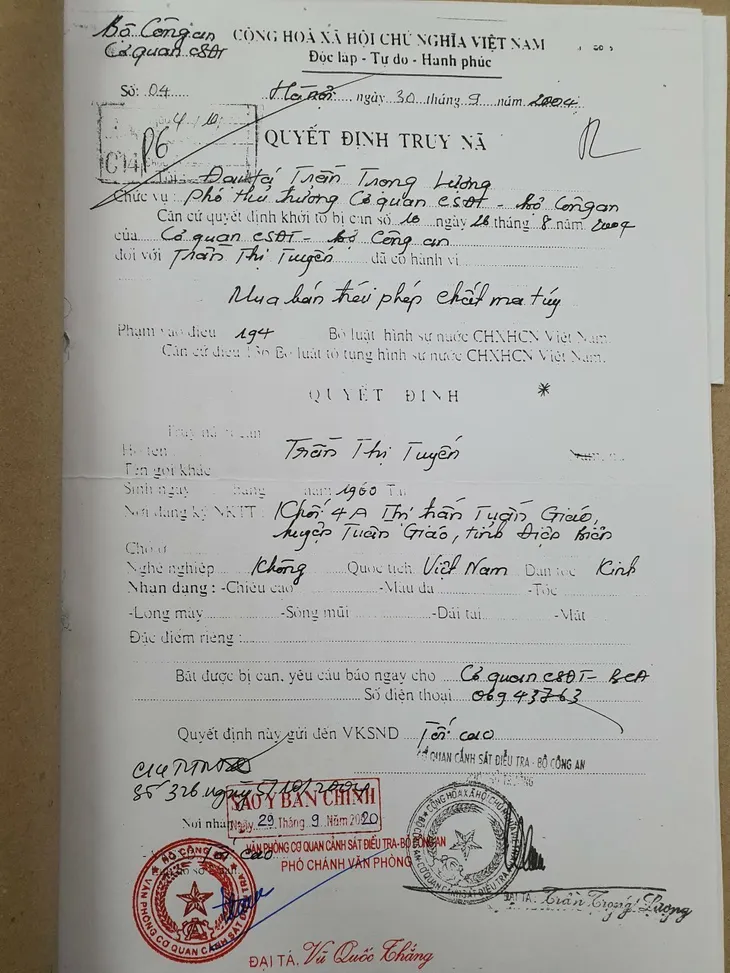 Bộ Công an
Cơ quan CSĐT
CỘNG HOÀ XÃ HỘI CHỦ NGHĨA VIỆT NAM
Độc lập - Tự do - Hạnh phúc
Số: 04
Hà nội, ngày 30 tháng 9 năm 2004
QUYẾT ĐỊNH TRUY NÃ
Đại tá Trần Trọng Lượng
Chức vụ: Phó thủ trưởng Cơ quan CSĐT - Bộ Công an
Căn cứ quyết định khởi tố bị can số 10 ngày 26 tháng 8 năm 2004
của Cơ quan CSĐT - Bộ Công an
đối với Trần Thị Tuyến đã có hành vi
Mua bán trái phép chất ma túy
Phạm vào điều 194 Bộ luật hình sự nước CHXHCN Việt Nam.
Căn cứ điều Bộ luật tố tụng hình sự nước CHXHCN Việt Nam.
QUYẾT ĐỊNH
Truy nã bị can
Họ tên Trần Thị Tuyến
Tên gọi khác
Sinh ngày tháng năm 1960 Tại
Nơi đăng ký NKTT: Khối 4A Thị trấn Tuần Giáo,
huyện Tuần Giáo, tỉnh Điện Biên
Chỗ ở
Nghề nghiệp Không Quốc tịch Việt Nam Dân tộc Kinh
Nhận dạng: -Chiều cao -Màu da -Tóc
-Lông mày -Sống mũi -Dái tai -Mắt
Đặc điểm riêng:
Bắt được bị can, yêu cầu báo ngay cho Cơ quan CSĐT - BCA
Số điện thoại 069 43763
Quyết định này gửi đến VKSND Tối cao
CƠ QUAN CẢNH SÁT ĐIỀU TRA - BỘ CÔNG AN
Số 326 ngày 5/10/2004
SAO Y BẢN CHÍNH
Ngày 29 Tháng 9 Năm 2020
Nơi nhận
VĂN PHÒNG CƠ QUAN CẢNH SÁT ĐIỀU TRA-BỘ CÔNG AN
PHÓ CHÁNH VĂN PHÒNG
Tối cao
BỘ CÔNG AN
VĂN PHÒNG CƠ QUAN CẢNH SÁT ĐIỀU TRA
ĐẠI TÁ. Trần Trọng Lượng
ĐẠI TÁ. Vũ Quốc Thắng